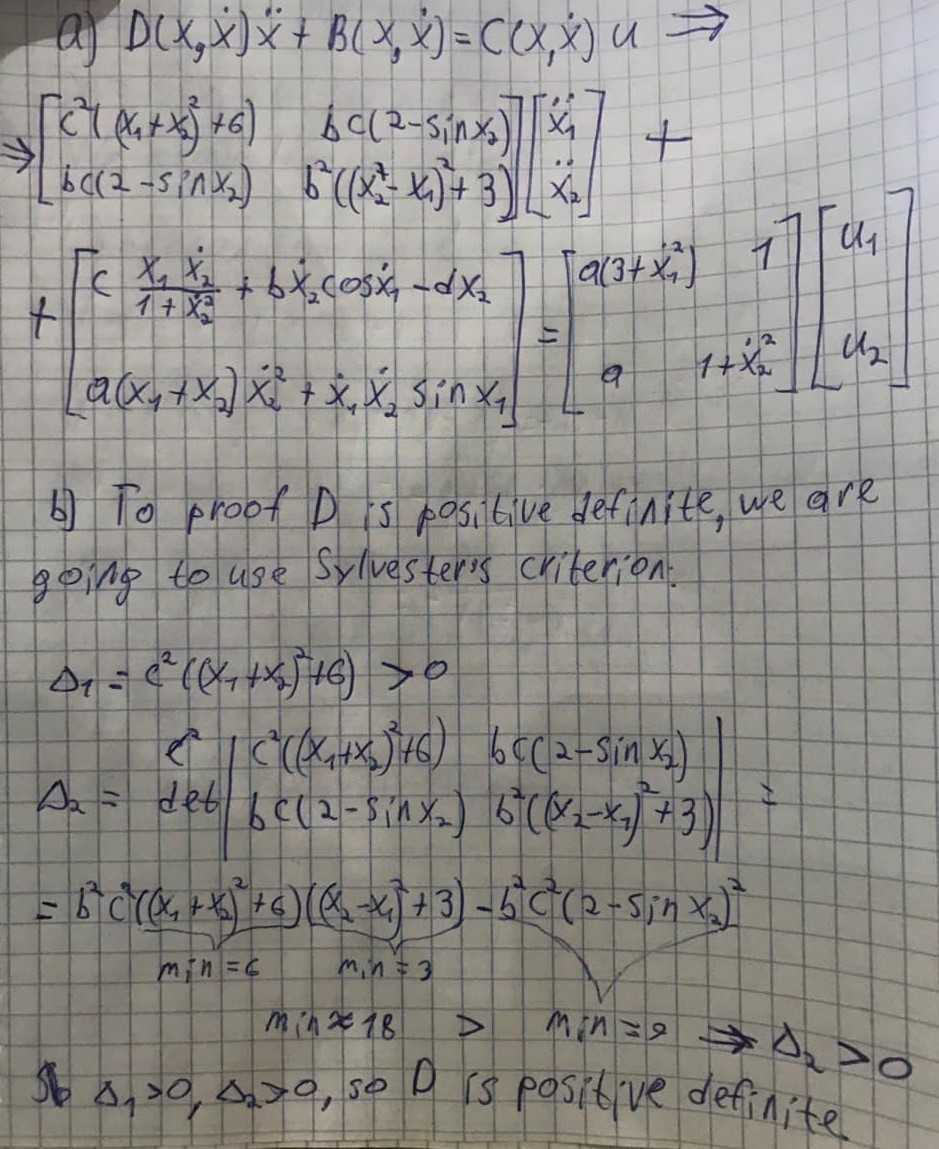 a) D(x,ẋ)ẍ + B(x,ẋ) = C(x,ẋ) u ⇒
⇒ [c²((x₁+x₂)²+6) bc(2-sinx₂)] [ẍ₁] +
[bc(2-sinx₂) b²((x₂-x₁)²+3)] [ẍ₂]
+ [c x₁ẋ₂/(1+ẋ₂²) + bẋ₂cosẋ₁ - dx₂] = [a(3+ẋ₁²) 1] [u₁]
[a(x₁+x₂)ẋ₂² + ẋ₁ẋ₂ sin x₁] [a 1+ẋ₂²] [u₂]
b) To proof D is positive definite, we are
going to use Sylvester's criterion:
Δ₁ = c²((x₁+x₂)²+6) > 0
Δ₂ = det | c²((x₁+x₂)²+6) bc(2-sinx₂) | =
| bc(2-sinx₂) b²((x₂-x₁)²+3) |
= b²c²((x₁+x₂)²+6)((x₂-x₁)²+3) - b²c²(2-sinx₂)²
min=6 min=3
min=18 > min=9 ⇒ Δ₂>0
Δ₁>0, Δ₂>0, so D is positive definite